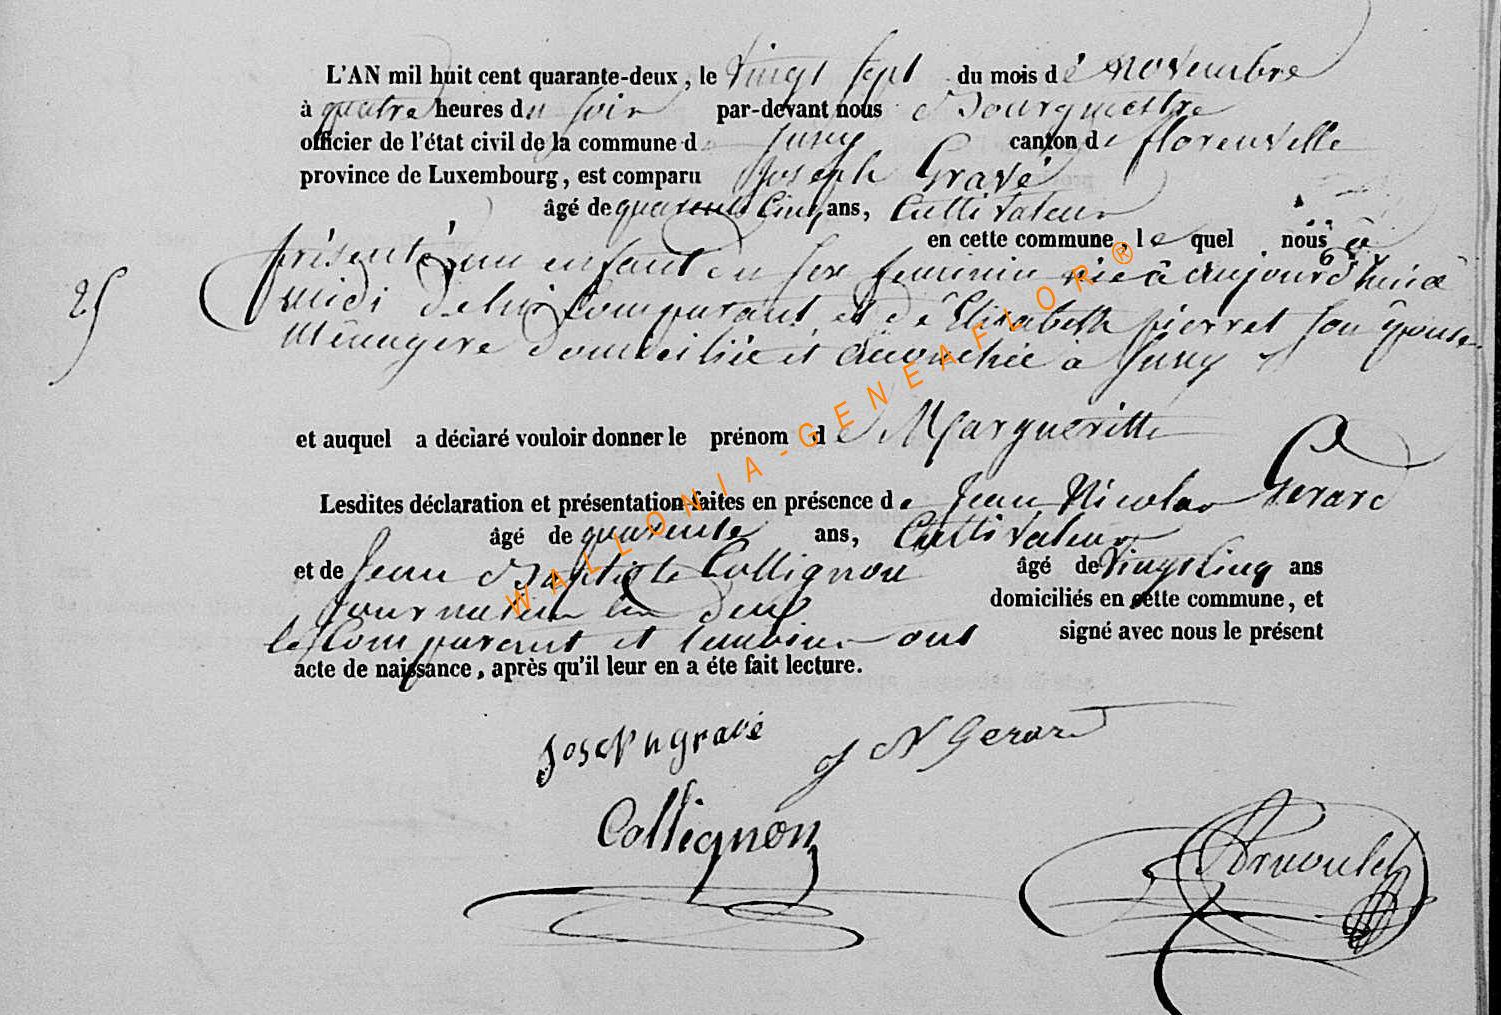 L'AN mil huit cent quarante-deux, le vingt sept du mois de novembre
à quatre heures du soir par-devant nous Bourgmestre
officier de l'état civil de la commune d Juny canton de florenville
province de Luxembourg, est comparu Joseph Gravé
âgé de quarente cinq ans, Cultivateur
en cette commune, le quel nous à
25
présenté un enfant du sexe feminin née aujourd'huiâ
midi de lui Comparant et dê Elisabeth pierret son épouse
Ménagere domiciliée et accouchée à Juny
et auquel a déclaré vouloir donner le prénom de Margueritte
Lesdites déclaration et présentation faites en présence de Jean Nicolas Gerard
âgé de quarente ans, Cultivateur
et de Jean Baptiste Collignon âgé de vingt cinq ans
Journalier les deux domiciliés en cette commune, et
le Comparant et temoins ont signé avec nous le présent
acte de naissance, après qu'il leur en a éte fait lecture.
Joseph gravé
J N Gerard
Collignon
Arnould
WALLONIA-GENEAFLOR®